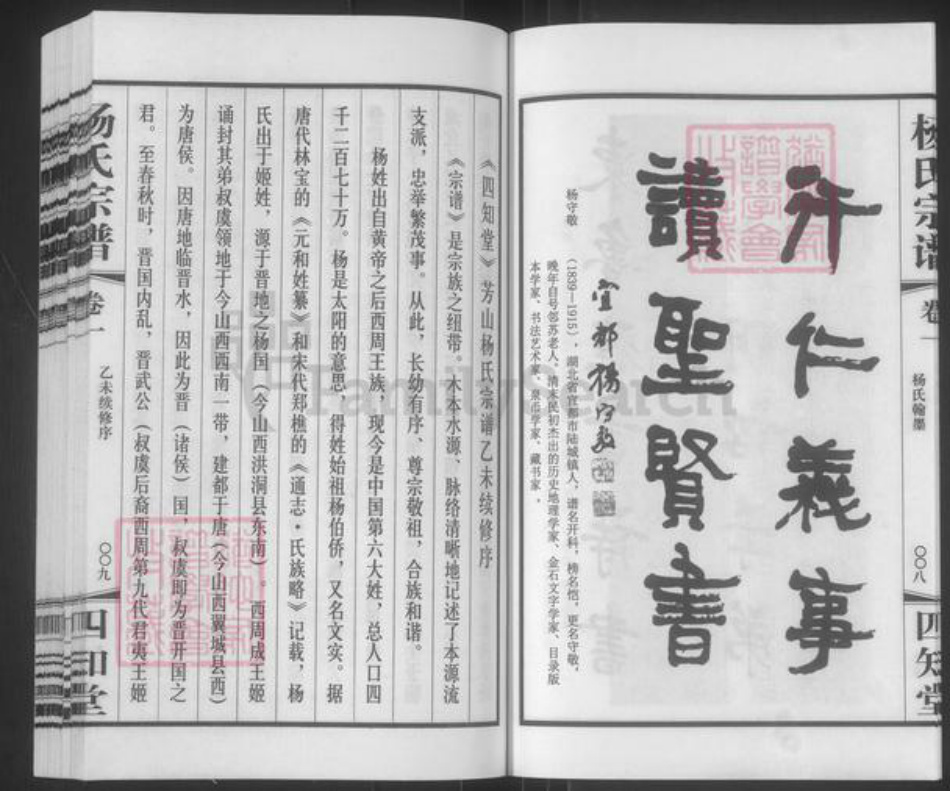 杨氏宗谱
卷一
杨氏翰墨
〇〇八
四知堂
行仁義事
讀聖賢書
宜都楊守敬
杨守敬
（1839－1915），湖北省宜都市陆城镇人，谱名开科，榜名恺，更名守敬，
晚年自号邻苏老人。清末民初杰出的历史地理学家、金石文字学家、目录版
本学家、书法艺术家、泉币学家、藏书家。
《四知堂》芳山杨氏宗谱乙未续修序
《宗谱》是宗族之纽带。木本水源、脉络清晰地记述了本源流
支派，忠举繁茂事。从此，长幼有序、尊宗敬祖，合族和谐。
杨姓出自黄帝之后西周王族，现今是中国第六大姓，总人口四
千二百七十万。杨是太阳的意思，得姓始祖杨伯侨，又名文实。据
唐代林宝的《元和姓纂》和宋代郑樵的《通志·氏族略》记载，杨
氏出于姬姓，源于晋地之杨国（今山西洪洞县东南）。西周成王姬
诵封其弟叔虞领地于今山西西南一带，建都于唐（今山西翼城县西）
为唐侯。因唐地临晋水，因此为晋（诸侯）国，叔虞即为晋开国之
君。至春秋时，晋国内乱，晋武公（叔虞后裔西周第九代君夷王姬
杨氏宗谱
卷一
乙未续修序
〇〇九
四知堂
FamilySearch